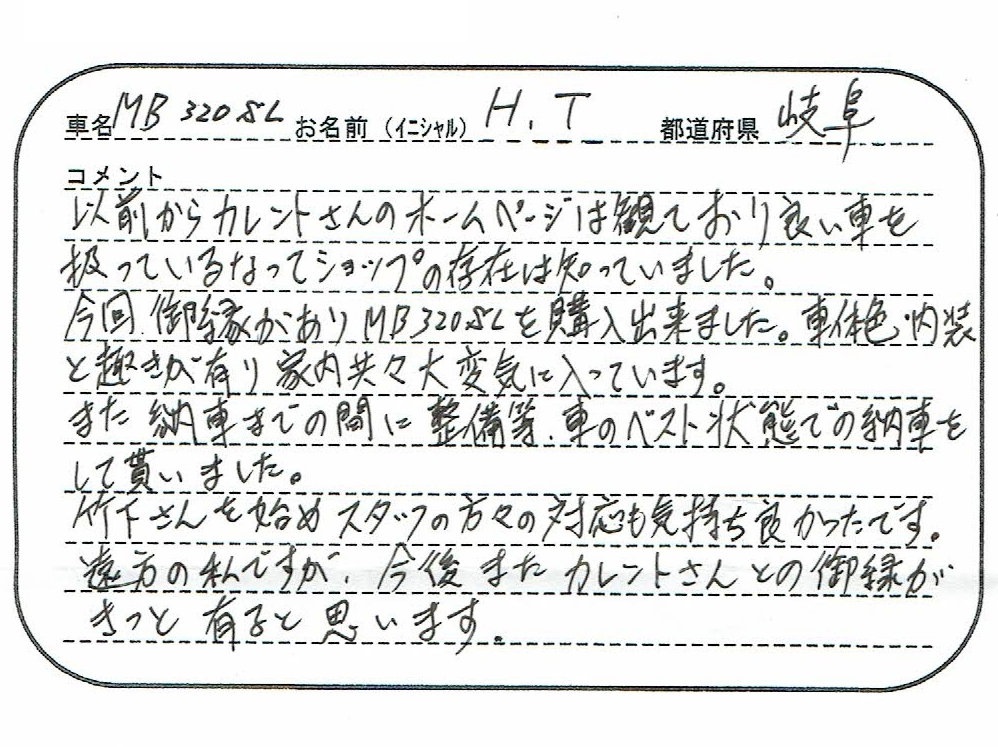 車名 MB 320SL お名前 (イニシャル) H.T 都道府県 岐阜
コメント
以前からカレントさんのホームページは観ており良い車を
扱っているなってショップの存在は知っていました。
今回、御縁があり MB320SLを購入出来ました。車体色、内装
と趣きが有り家内共々大変気に入っています。
また納車までの間に整備等、車のベスト状態での納車を
して貰いました。
竹下さんを始めスタッフの方々の対応も気持ち良かったです。
遠方の私ですが、今後またカレントさんとの御縁が
きっと有ると思います。